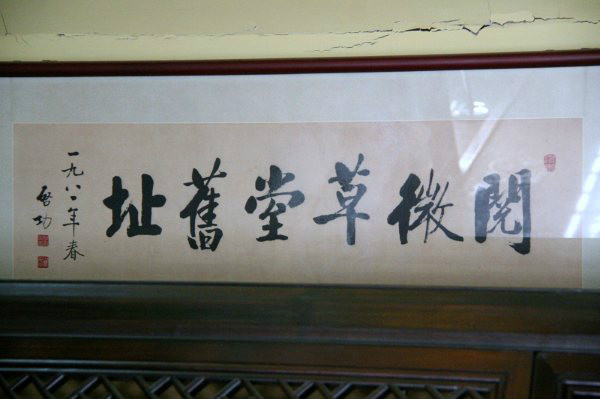 閱微草堂舊址
一九八二年春
啓功